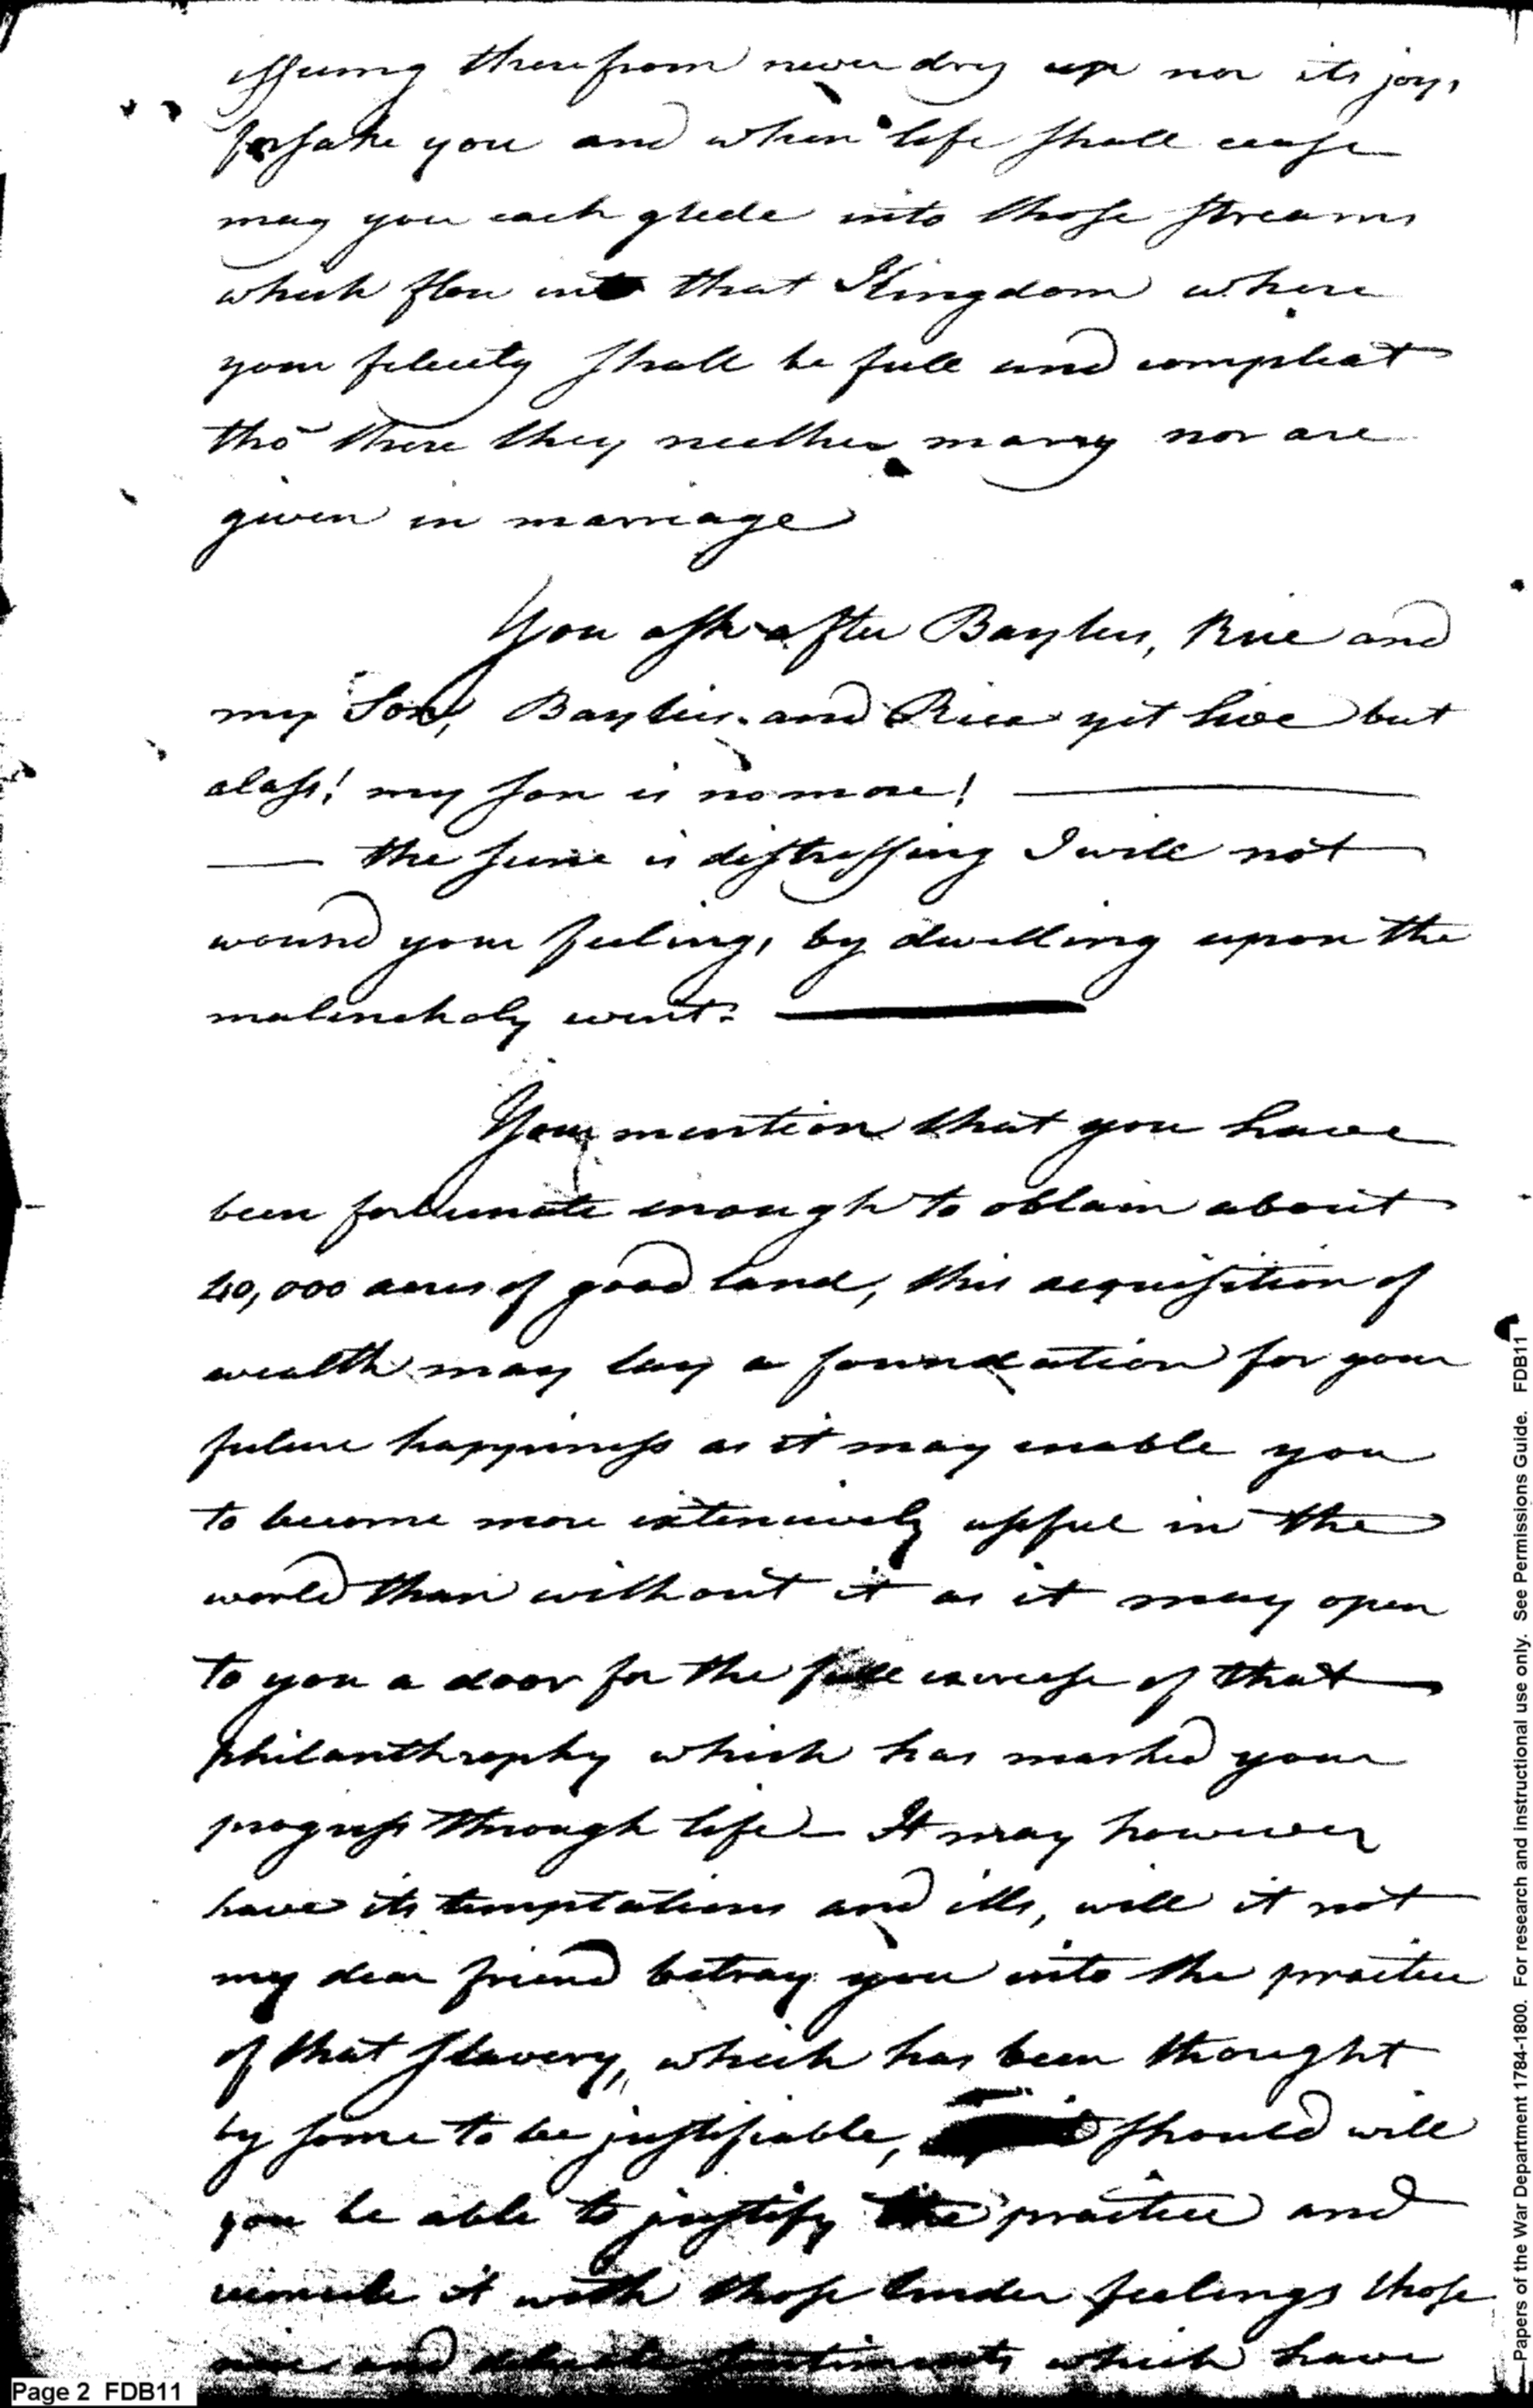 issuing therefrom never dry up nor its joys
forsake you and when life shall cease
may you each glide into those streams
which flow into that Kingdom where
your felicity shall be full and compleat
tho' there they neither marry nor are
given in marriage
You ask after Baylies, Rice and
my Son, Baylies and Rice yet live but
alass! my son is no more!
the scene is distressing I will not
wound your feelings by dwelling upon the
malencholy event.
You mention that you have
been fortunate enough to obtain about
40,000 acres of good land, this acquisition of
wealth may lay a foundation for your
future happiness as it may enable you
to become more extencively usful in the
world than without it as it may open
to you a door for the full exercise of that
philanthrophy which has marked your
progress through life - It may however
have its temptations and ills, will it not
my dear friend betray you into the practice
of that slavery, which has been thought
by some to be justifiable, should will
you be able to justify the practice and
reconcile it with those tender feelings those
nice and delicate sentiments which have
Page 2 FDB11
Papers of the War Department 1784-1800. For research and instructional use only. See Permissions Guide. FDB11